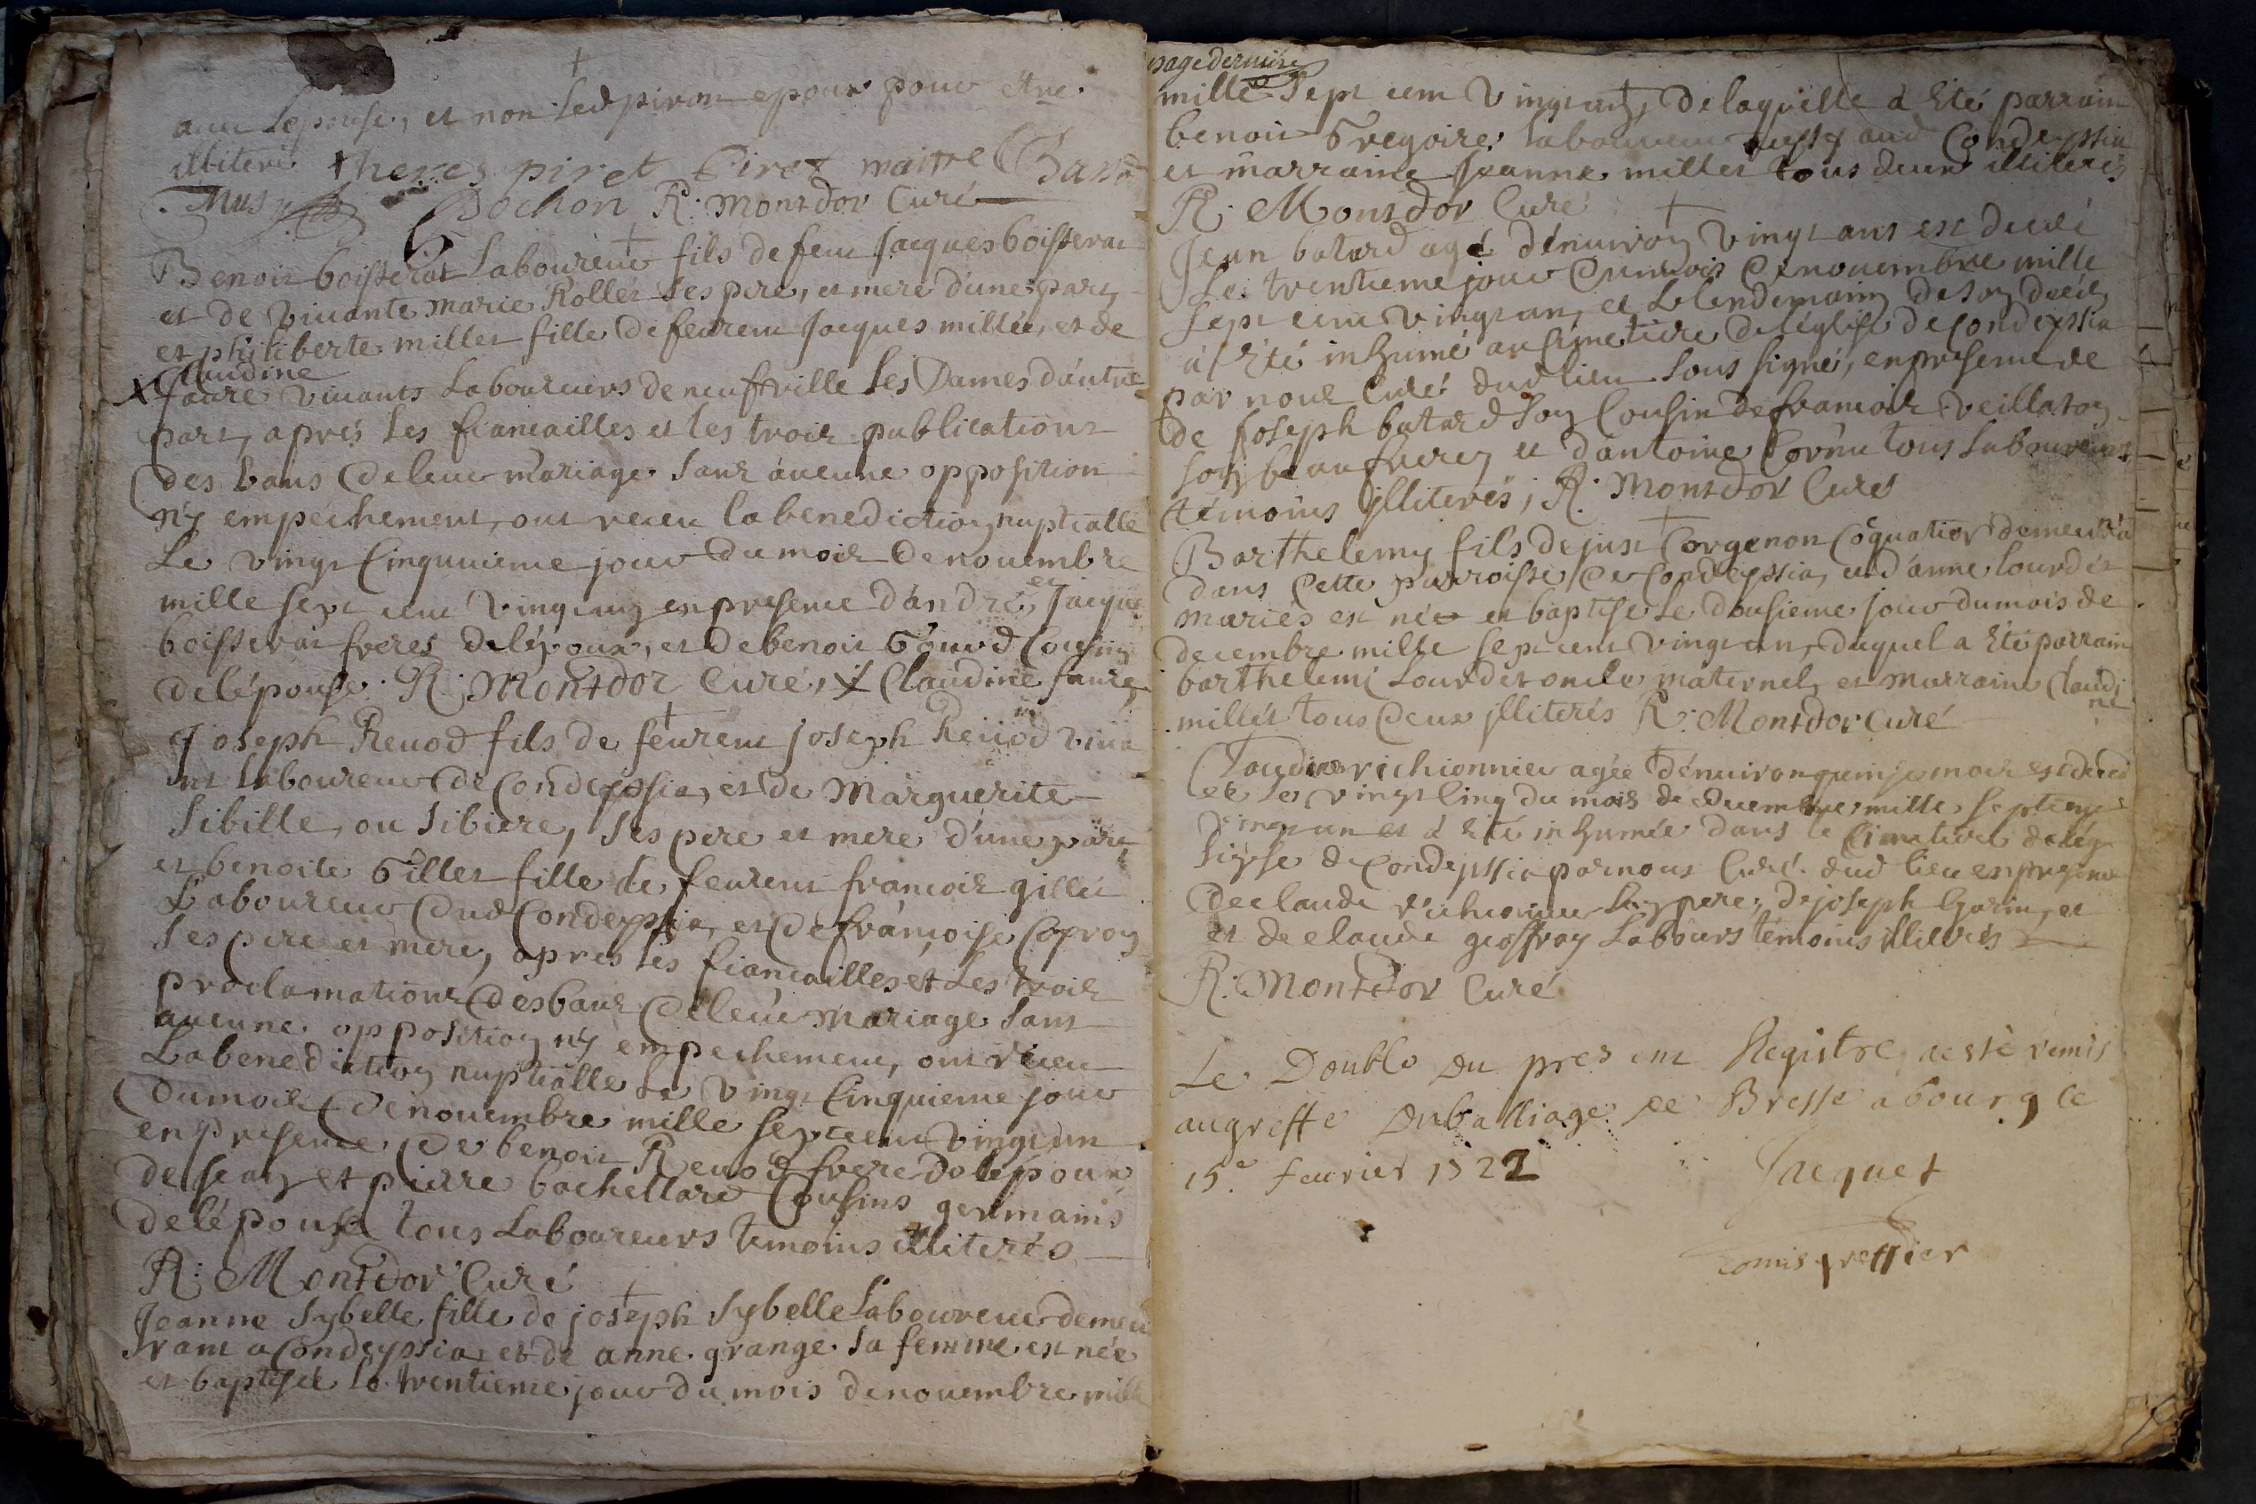 avec Lepouse, et non Led piron epoux pour etre
illiteré theres piret Piret maitre
Bochon R: Montdor Curé
Benoit boisserat Laboureur fils de feu Jacques boisserat
et de vivante marie Rollet ses pere, et mere d'une part,
et philiberte millet fille de feurent Jacques millet, et de
x Claudine
faure vivants Laboureurs de neufville les Dames d'autre
part, aprés les fiancailles et les trois publications
des bans de leur mariage sans aucune opposition
ny empechement, ont receu la benediction nuptialle
Le vingt Cinquieme jour du mois de novembre
mille sept cent vingt un en presence d'andré, et Jacque
boisserat freres de lépoux, et de benoit Gourd Cousin
de lépouse R: Montdor Curé, x Claudine faure
Joseph Revod fils de feurent joseph Revod viva
nt laboureur de Condeyssia, et de Marguerite
Sibille, ou Sibiere, ses pere et mere d'une part
et benoite Gillet fille de feurent francois gillet
Laboureur dud Condeyssia, et de francoise Copron
ses pere et mere, apres les fiancailles et Les trois
proclamations des bans de leur mariage sans
aucune opposition ny empechement, ont receu
La benediction nuptialle Le vingt Cinquieme jour
du mois de novembre mille sept cent vingt un
en presence de benoit Revod frere de lépoux
de jean et pierre bachellard Cousins germains
de lépouse tous Laboureurs temoins illiterés
R: Montdor Curé
Jeanne Sybelle fille de joseph Sybelle Laboureur demeu
rant a Condeyssia, et de anne grange sa femme est née
et baptisée le trentieme jour du mois de novembre mille
page derniére
mille Sept cent Vingt un, de laquelle a Eté parrain
benoit Gregoire laboureur aussy aud Condeyssia
et marraine Jeanne millet tous deux illiterés
R: Montdor Curé
Jean batard agé d'énuiron vingt ans est decedé
Le trentieme jour du mois de nouembre mille
Sept cent vingt un, et Le lendemain de son decés
a Eté inhumé au Cimetiere de léglise de Condeyssia
par nous Curé dud lieu sous signé, en presence de
de joseph batard son Cousin de francois veillaton
son beau frere, et d'antoine Cornu tous Laboureurs
témoins illiterés, R: Montdor Curé
Barthelemy fils de just Corgenon Coquatier demeura
dans Cette parroisse de Condeyssia, et d'anne Lourdet
mariés est né et baptisé Le dousieme jour du mois de
decembre mille sept cent vingt un, duquel a Eté parrain
barthelemi Lourdet oncle maternel, et marraine Claudi
ne
millet tous deux illiterés R: Montdor Curé
Claudine richionnier agée d'énuiron quinse mois est deced
ée le vingt Cinq du mois de decembre mille sept cent
vingt un et a Eté inhumée dans le Cimetiere de lég
lisse de Condeyssia par nous Curé dud lieu en presence
de claude richionnier son pere, de joseph Garin, et
et de claude geoffray Labours témoins illiterés
R: Montdor Curé
Le Double du present Registre a esté remis
au greffe du balliage de Bresse a bourg le
15.e feurier 1722
Jacquet
comis greffier